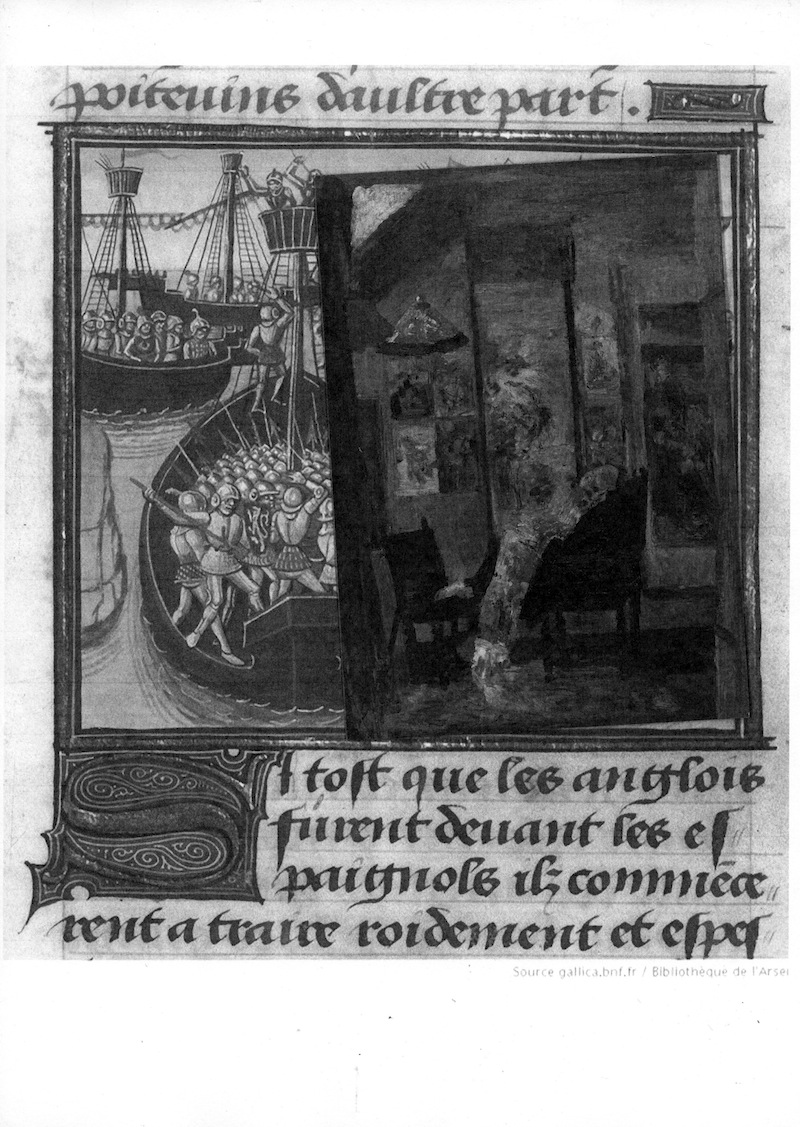 poiteuins daultre part .
Si tost que les anglois
furent deuant les es
paignols ilz commēce
rent a traire roidement et espes
Source gallica.bnf.fr / Bibliothèque de l'Arsei